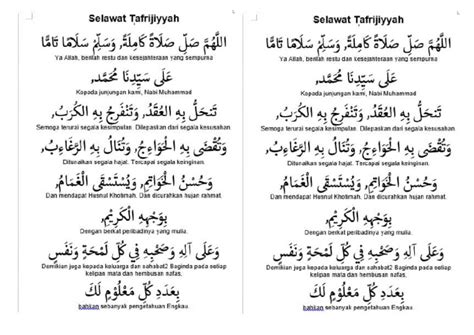 Selawat Tafrijiyyah
اللَّهُمَّ صَلِّ صَلَاةً كَامِلَةً, وَسَلِّمْ سَلَامًا تَامًّا
Ya Allah, berilah restu dan kesejahteraan yang sempurna
عَلَى سَيِّدِنَا مُحَمَّد,
Kepada junjungan kami, Nabi Muhammad
تَنحَلُّ بِهِ الْعُقَدُ, وَتَنْفَرِجُ بِهِ الْكُرَبُ,
Semoga terurai segala kesimpulan. Dilepaskan dari segala kesusahan
وَتُقْضَى بِهِ الْحَوَائِجُ, وَتُنَالُ بِهِ الرَّغَائِبُ,
Ditunaikan segala hajat. Tercapai segala keinginan.
وَحُسْنُ الْخَوَاتِمِ, وَيُسْتَسْقَى الْغَمَامُ,
Dan mendapat Husnul Khotimah. Dan dicurahkan hujan rahmat
بِوَجْهِهِ الْكَرِيْمِ,
Dengan berkat peribadinya yang mulia.
وَعَلَى آلِهِ وَصَحْبِهِ فِي كُلِّ لَمْحَةٍ وَنَفَسٍ
Demikian juga kepada keluarga dan sahabat2 Baginda pada setiap
kelipan mata dan hembusan nafas,
بِعَدَدِ كُلِّ مَعْلُوْمٍ لَكَ
bahkan sebanyak pengetahuan Engkau
Selawat Tafrijiyyah
اللَّهُمَّ صَلِّ صَلَاةً كَامِلَةً, وَسَلِّمْ سَلَامًا تَامًّا
Ya Allah, berilah restu dan kesejahteraan yang sempurna
عَلَى سَيِّدِنَا مُحَمَّد,
Kepada junjungan kami, Nabi Muhammad
تَنحَلُّ بِهِ الْعُقَدُ, وَتَنْفَرِجُ بِهِ الْكُرَبُ,
Semoga terurai segala kesimpulan. Dilepaskan dari segala kesusahan
وَتُقْضَى بِهِ الْحَوَائِجُ, وَتُنَالُ بِهِ الرَّغَائِبُ,
Ditunaikan segala hajat. Tercapai segala keinginan.
وَحُسْنُ الْخَوَاتِمِ, وَيُسْتَسْقَى الْغَمَامُ,
Dan mendapat Husnul Khotimah. Dan dicurahkan hujan rahmat
بِوَجْهِهِ الْكَرِيْمِ,
Dengan berkat peribadinya yang mulia.
وَعَلَى آلِهِ وَصَحْبِهِ فِي كُلِّ لَمْحَةٍ وَنَفَسٍ
Demikian juga kepada keluarga dan sahabat2 Baginda pada setiap
kelipan mata dan hembusan nafas,
بِعَدَدِ كُلِّ مَعْلُوْمٍ لَكَ
bahkan sebanyak pengetahuan Engkau